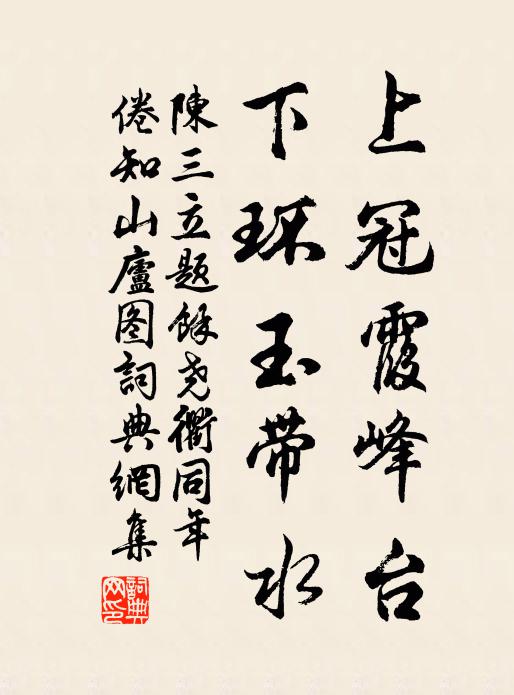 上冠霞峰台
下环玉带水
陳三立題餘尧衢同年
倦知山廬图詞典網集
詞典网印